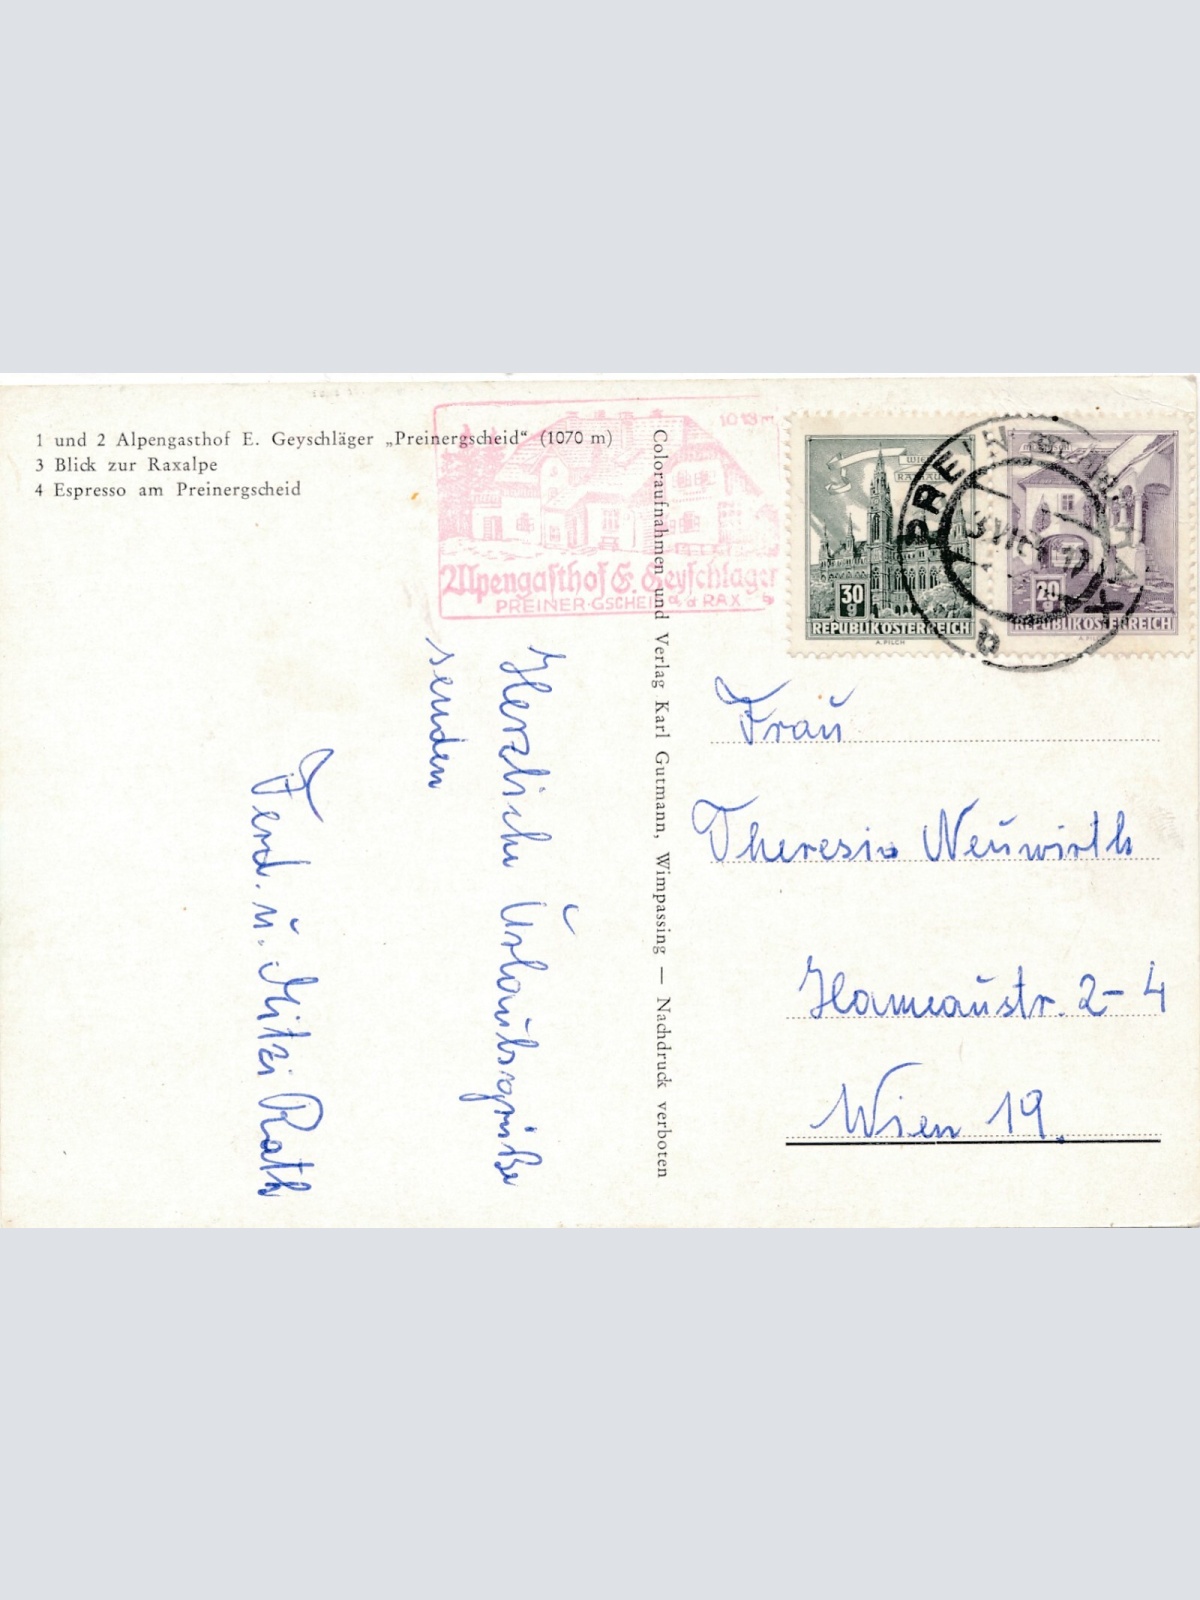 1 und 2 Alpengasthof E. Geyschläger „Preinergscheid“ (1070 m)
3 Blick zur Raxalpe
4 Espresso am Preinergscheid
Alpengasthof E. Geyschlager
PREINER-GSCHEID a/d RAX
Herzliche Urlaubsgrüße
senden
Ferd. u. Mitzi Rath
Coloraufnahmen und Verlag Karl Gutmann, Wimpassing — Nachdruck verboten
30 g
REPUBLIK ÖSTERREICH
A. PILCH
20 g
REPUBLIK ÖSTERREICH
PREIN
RAX
a
Frau
Theresia Neuwirth
Hameaustr. 2-4
Wien 19.